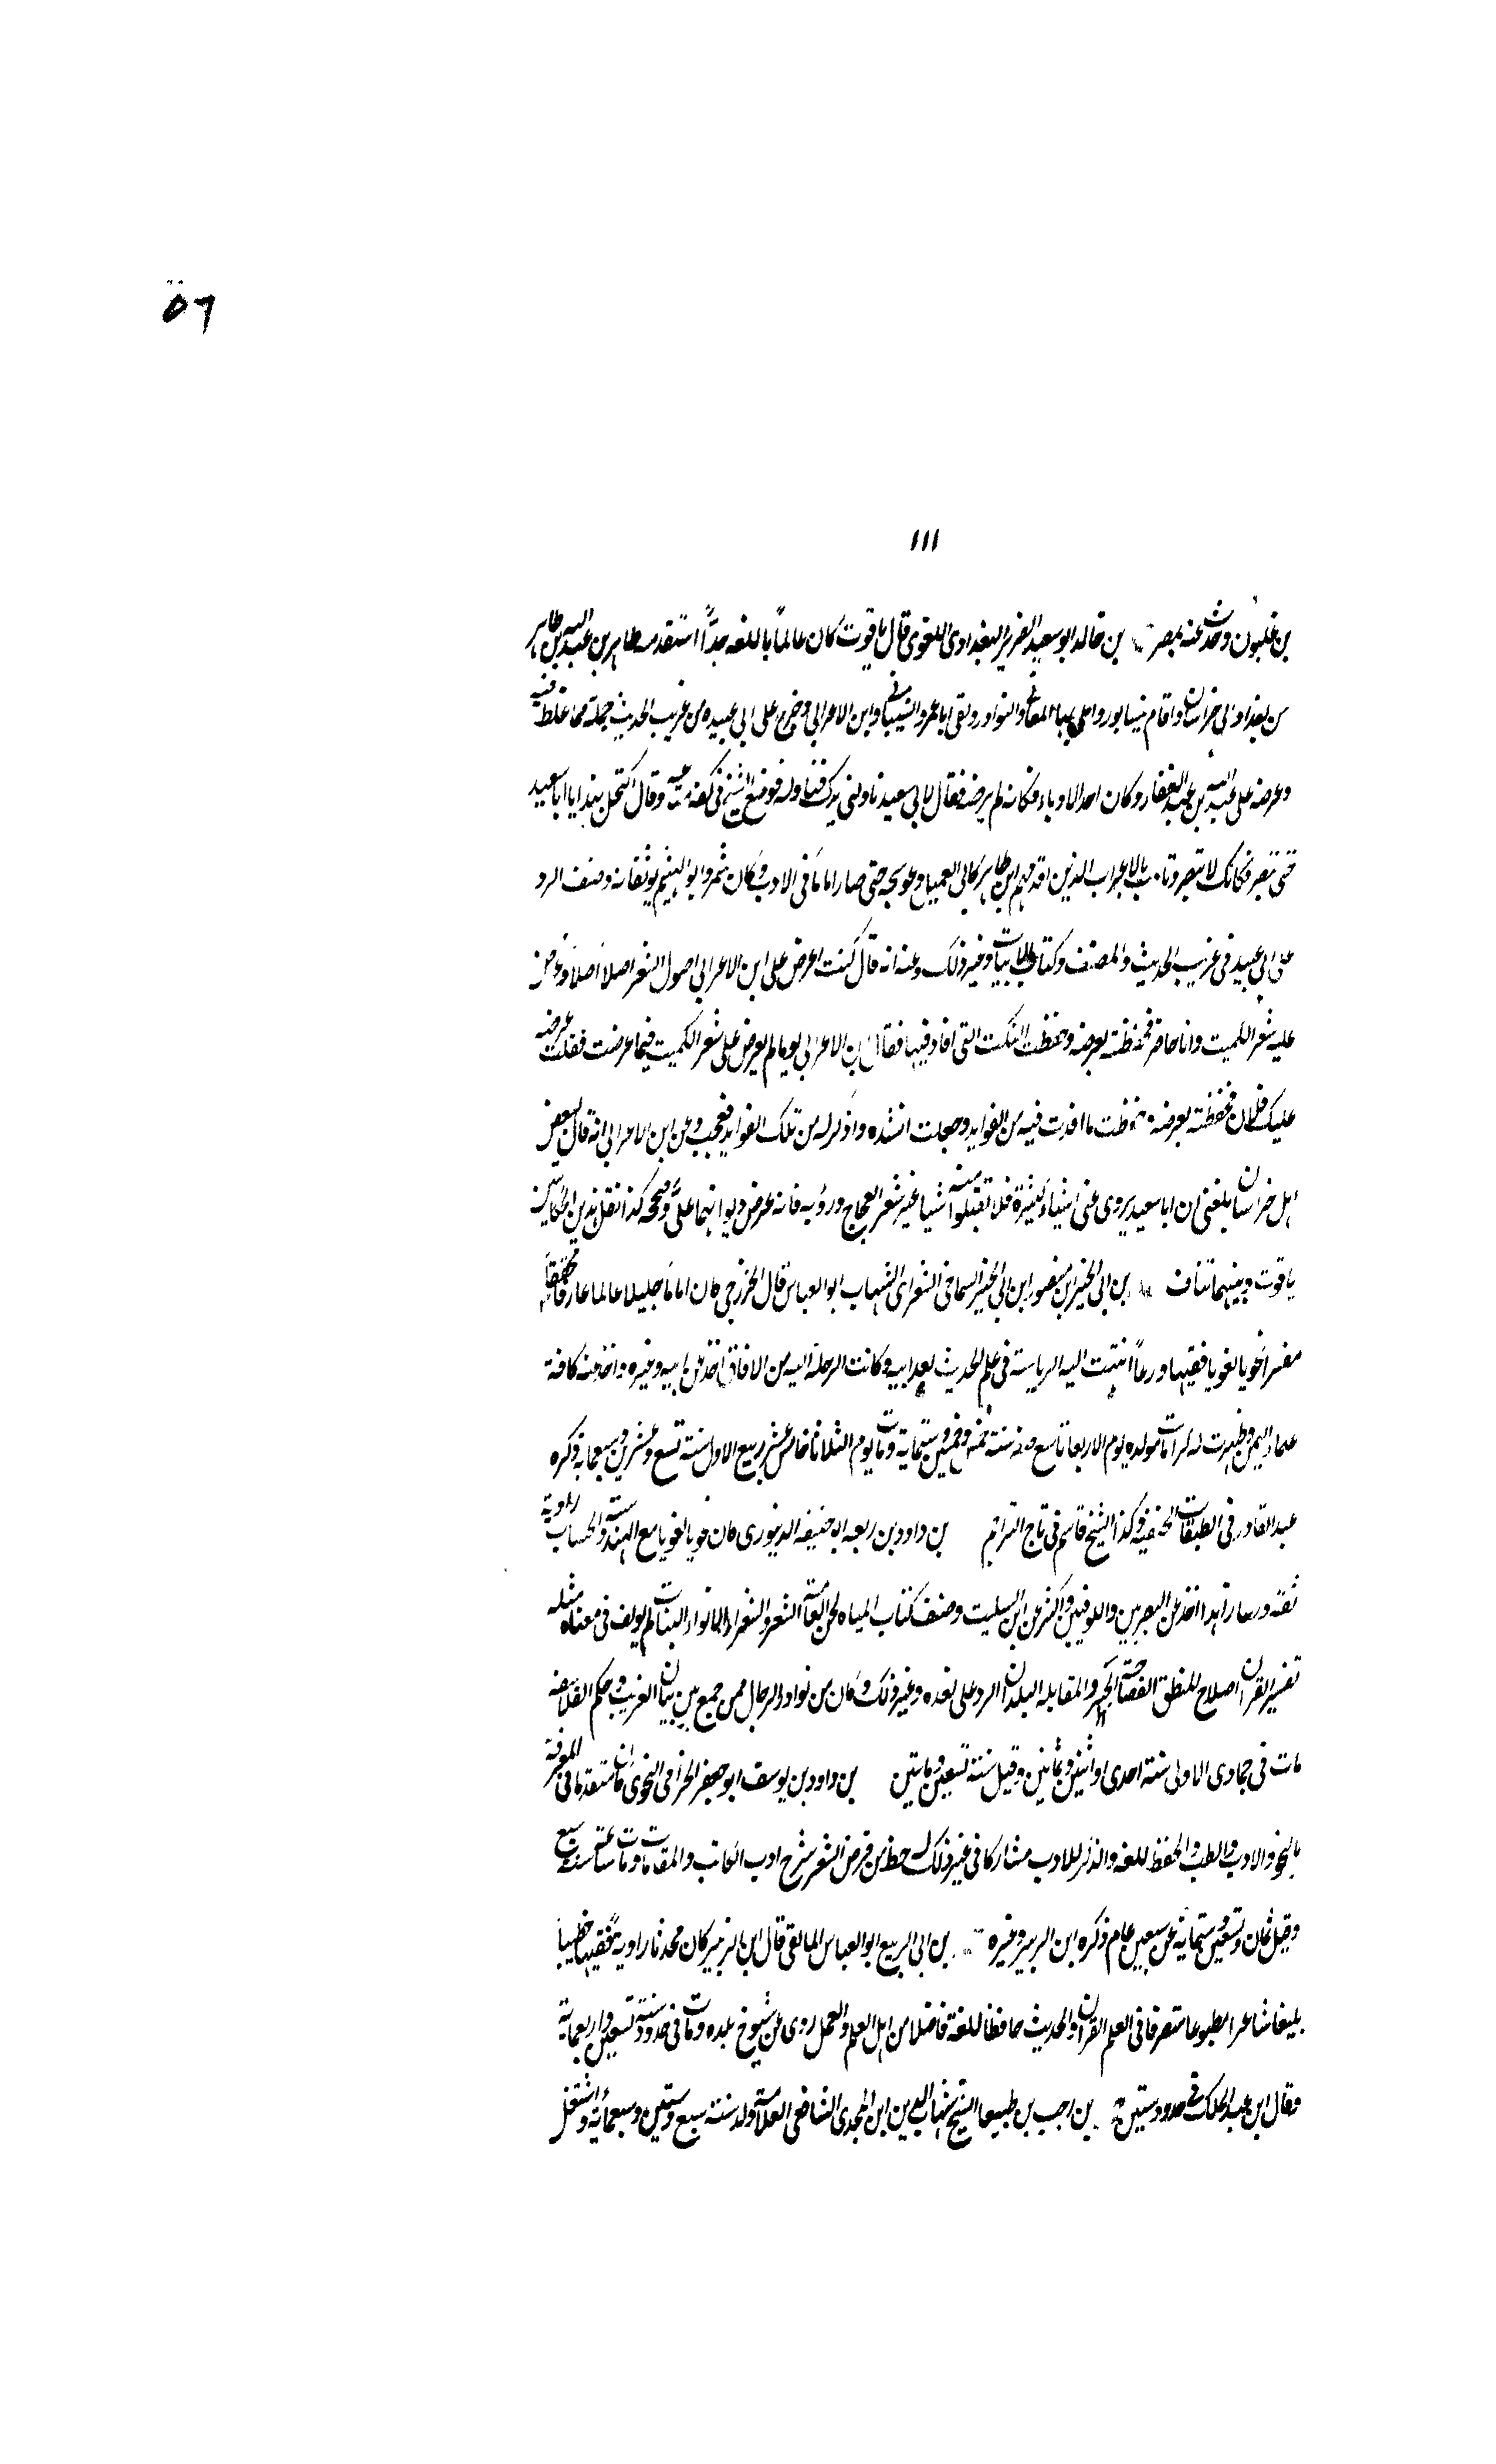 ٥٦
١١١
بن غلبون وحدث عنه بمصر بن خالد ابو سعيد الضرير البغدادى اللغوى قال ياقوت كان عالماً باللغه جدّاً استقدمه طاهر بن عبد الله بن طاهر
من بغداد الى خراسان واقام بنيسابور واملى بها المعانى والنوادر ولقى ابا عمرو الشيبانى وابن الاعرابى وخرج على ابى عبيده من غريب الحديث جملة مما غلط فيه
وعرضه على عبد الله بن عبد الغفار وكان احد الادباء فكانه لم يرضه فقال لابى سعيد ناولنى يدك فناوله فوضع الشيخ فى كفه وقال اكتحل بهذا يا ابا سعيد
حتى تبصر فكانك لا تبصر وتادب بالاعراب الذين اقدمهم ابن طاهر كابى العميثل وعوسجه حتى صار اماما فى الادب وكان شمر وابو الهيثم يوثقانه وصنف الرد
على ابى عبيد فى غريب الحديث والمصنف وكتاب الابيات وغير ذلك وعنه انه قال كنت اعرض على ابن الاعرابى اصول الشعر اصلا اصلا وعرض
عليه شعر الكميت وانا حاضر فحفظته بعرضه وحفظت النكت التى افاد فيها فقال ابن الاعرابى يوما لم يعرض على شعر الكميت فيما عرضت فقلت عرضه
عليك فلان فحفظته بعرضه وحفظت ما افدت فيه من الفوايد وجعلت انشده واذكر له من تلك الفوايد فعجب وعن ابن الاعرابى انه قال لبعض
اهل خراسان بلغنى ان ابا سعيد يروى عنى اشياء كثيرة فلا تقبلوا منه شيا غير شعر العجاج ورؤبه فانه عرض ديوانهما علىّ وصححه كذا نقل هذين الحكايتين
ياقوت وبينهما تناف بن ابى الخير ابن منصور ابن ابى الخير الشماخى الشهاب ابو العباس قال الخزرجى كان اماما جليلا عالما عارفا محققاً
مفسرا نحويا لغويا فقيها ورعاً انتهت اليه الرياسة فى علم الحديث بعد ابيه وكانت الرحلة اليه من الافاق اخذ عن ابيه وغيره واخذ عنه كافة
علماء اليمن وظهرت له كرامات مولده يوم الاربعا تاسع سنة خمس وخمسين وستماية ومات يوم الثلاثا خامس عشر ربيع الاول سنة تسع وعشرين وسبعماية ذكره
عبد القادر فى الطبقات الحنفيه وكذا الشيخ قاسم فى تاج التراجم بن داود بن ابو حنيفه الدينورى كان نحويا لغويا مع الهندسة والحساب راوية
ثقة ورعا زاهدا اخذ عن البصريين والكوفيين واكثر عن ابن السكيت وصنف كتاب المياه لحن العامة الشعر والشعراء الانواء النبات لم يولف فى معناه مثله
تفسير القران اصلاح المنطق الفصاحة الجبر والمقابله البلدان الرد على لغده وغير ذلك وكان من نوادر الرجال ممن جمع بين بيان العرب وحكم الفلاسفه
مات فى جمادى الاولى سنة احدى او اثنين وثمانين وقيل سنة تسعين وماتين بن داود بن يوسف ابو جعفر النحوى كان متقدما فى المعرفة
بالنحو والادب والطب والحفظ للغه والذكر للادب مشاركا فى غير ذلك له حظ من قرض الشعر شرح ادب الكاتب والمقامات ومات سنة سبع
وقيل ثمان وتسعين وستماية عن سبعين عام ذكره ابن الزبير وغيره بن ابى الربيع ابو العباس المالقى قال ابن الزبير كان محدثا راوية فقيها خطيبا
بليغا شاعرا مطبوعا متصرفا فى العلم القران والحديث حافظا للغة فاضلا من اهل العلم والعمل روى عن شيوخ بلده ومات فى حدود سنة تسعين واربعماية
وقال ابن عبد الملك فى حدود ستين بن رجب بن طيبغا الشيخ شهاب الدين ابن المجدى الشافعى العلامة ولد سنة سبع وستين وسبعمائة واشتغل